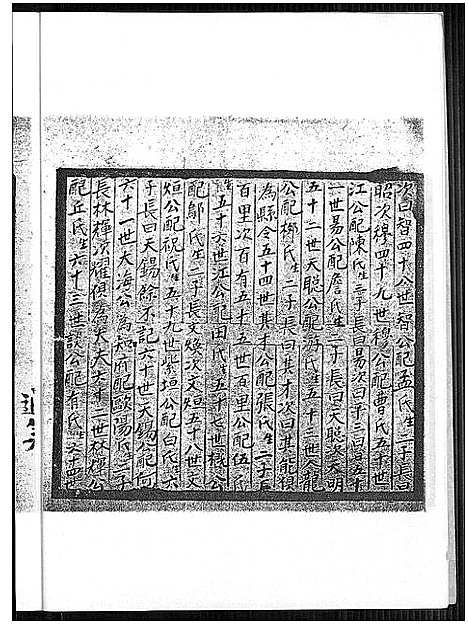 次曰智四十八世智公配孟氏生二子長曰
昭次穆四十九世穆公配曹氏五十世
江公配陳氏生三子長曰易次曰予三曰五十
一世易公配詹氏生二子長曰天聰天明
五十二世天聰公配游氏生五十三世龍
公配鄭氏生二子長曰其才次曰其能俱
為縣令五十四世其才公配張氏生二子長
百里次百有五十五世百里公配伍氏
生五十六世江公配田氏生五十七世
配鄔氏生二子長文煥次文烜五十八世文
烜公配祝氏生五十九世紫垣公配白氏生六
子長曰天錫餘不記六十世天錫公配何
六十一世大海公為知府配歐陽氏生二子
長林樺次耀俱居大夫六十二世林樺公
配丘氏生六十三世談公配有氏生文